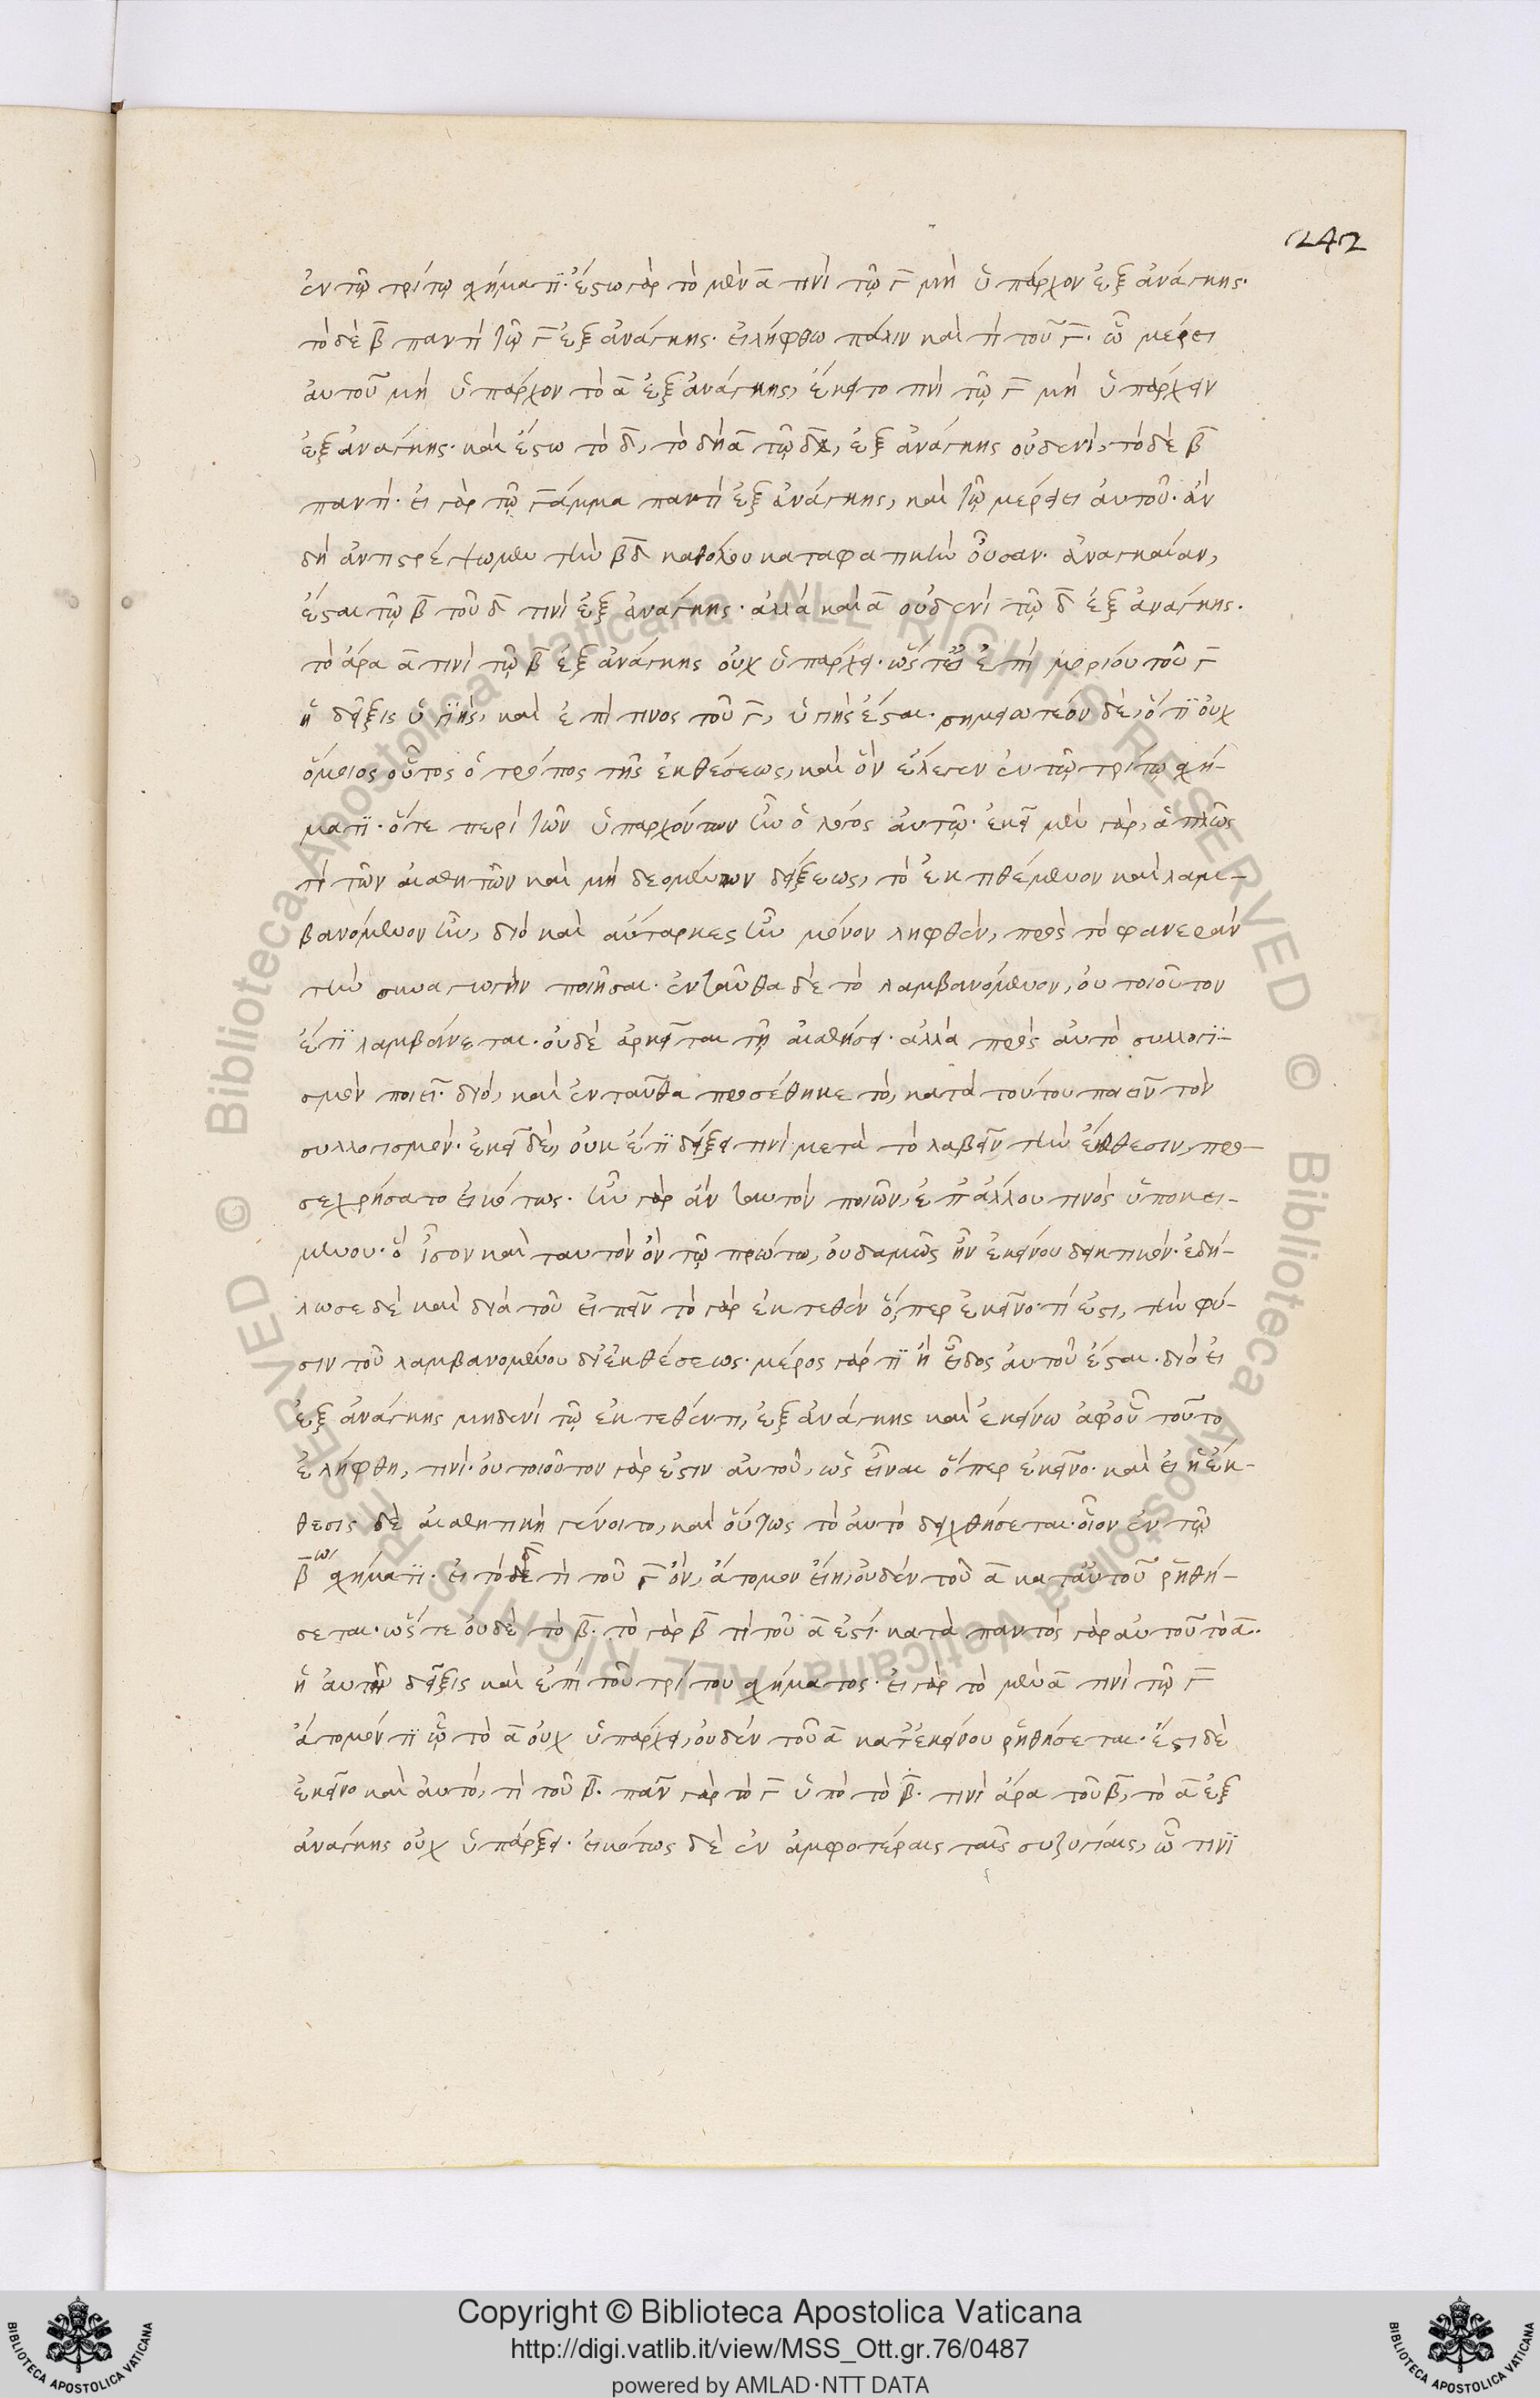 242
ἐν τῷ τρίτῳ σχήματι. ἔστω γὰρ τὸ μὲν α τινὶ τῷ γ μὴ ὑπάρχον ἐξ ἀνάγκης.
τὸ δὲ β παντὶ τῷ γ ἐξ ἀνάγκης. εἰλήφθω πάλιν καὶ τὶ τοῦ γ. ᾧ μέρει
αὐτοῦ μὴ ὑπάρχον τὸ α ἐξ ἀνάγκης, ἔκειτο τινὶ τῷ γ μὴ ὑπάρχειν
ἐξ ἀνάγκης. καὶ ἔστω τὸ δ, τὸ δὴ α τῷ δ, ἐξ ἀνάγκης οὐδενὶ, τὸ δὲ β
παντὶ. εἰ γὰρ τῷ γάμμα παντὶ ἐξ ἀνάγκης, καὶ τῷ μέρει αὐτοῦ. ἂν
δὴ ἀντιστρέψωμεν τὴν βδ καθόλου καταφατικὴν οὖσαν. ἀναγκαίαν,
ἔσται τῷ β τοῦ δ τινὶ ἐξ ἀνάγκης. ἀλλὰ καὶ α οὐδενὶ τῷ δ ἐξ ἀνάγκης.
τὸ ἄρα α τινὶ τῷ β ἐξ ἀνάγκης οὐχ ὑπάρχει. ὥστε εἰ ἐπὶ μορίου τοῦ γ
ἡ δεῖξις ὑγιὴς, καὶ ἐπὶ τινος τοῦ γ, ὑγιὴς ἔσται. σημειωτέον δὲ, ὅτι οὐχ
ὅμοιος οὗτος ὁ τρόπος τῆς ἐκθέσεως, καὶ ὃν ἔλεγεν ἐν τῷ τρίτῳ σχή-
ματι. ὅτε περὶ τῶν ὑπαρχόντων ἦν ὁ λόγος αὐτῷ. ἐκεῖ μὲν γὰρ, ἁπλῶς
τὶ τῶν αἰσθητῶν καὶ μὴ δεομένων δείξεως, τὸ ἐκτιθέμενον καὶ λαμ-
βανόμενον ἦν, διὸ καὶ αὔταρκες ἦν μόνον ληφθὲν, πρὸς τὸ φανερὰν
τὴν συναγωγὴν ποιῆσαι. ἐνταῦθα δὲ τὸ λαμβανόμενον, οὐ τοιοῦτον
ἔτι λαμβάνεται. οὐδὲ ἀρκεῖται τῇ αἰσθήσει. ἀλλὰ πρὸς αὐτὸ συλλογι-
σμὸν ποιεῖ. διὸ, καὶ ἐνταῦθα προσέθηκε τὸ, κατὰ τούτου ποιεῖν τὸν
συλλογισμὸν. ἐκεῖ δὲ, οὐκ ἔτι δείξει τινὶ μετὰ τὸ λαβεῖν τὴν ἔκθεσιν, προ-
σεχρήσατο εἰκότως. ἦν γὰρ ἂν ταυτὸν ποιῶν, ἐπ' ἄλλου τινὸς ὑποκει-
μένου. ὃ ἴσον καὶ ταυτὸν ὂν τῷ πρώτω, οὐδαμῶς ἦν ἐκείνου δεικτικὸν. ἐδή-
λωσε δὲ καὶ διὰ τοῦ εἰπεῖν τὸ γὰρ ἐκτεθὲν ὅπερ ἐκεῖνο τί ἐστι, τὴν φύ-
σιν τοῦ λαμβανομένου δι' ἐκθέσεως. μέρος γὰρ τι ἢ εἶδος αὐτοῦ ἔσται. διὸ εἰ
ἐξ ἀνάγκης μηδενὶ τῷ ἐκτεθέντι, ἐξ ἀνάγκης καὶ ἐκείνω ἀφ' οὗ τοῦτο
ἐλήφθη, τινὶ. οὐ τοιοῦτον γὰρ ἐστιν αὐτοῦ, ὡς εἶναι ὅπερ ἐκεῖνο. καὶ εἰ ἡ ἔκ-
θεσις δὲ αἰσθητικὴ γένοιτο, καὶ οὕτως τὸ αὐτὸ δειχθήσεται. οἷον ἐν τῷ
βω σχήματι. εἰ τὸ δ τὶ τοῦ γ ὂν, ἄτομον εἴη, οὐδὲν τοῦ α κατ' αὐτοῦ ῥηθή-
σεται. ὥστε οὐδὲ τὸ β. τὸ γὰρ β τὶ τοῦ α ἐστὶ. κατὰ παντὸς γὰρ αὐτοῦ τὸ α.
ἡ αὐτὴ δεῖξις καὶ ἐπὶ τοῦ τρίτου σχήματος. εἰ γὰρ τὸ μὲν α τινὶ τῷ γ
ἄτομόν τι ᾧ τὸ α οὐχ ὑπάρχει, οὐδὲν τοῦ α κατ' ἐκείνου ῥηθήσεται. ἔστι δὲ
ἐκεῖνο καὶ αὐτὸ, τὶ τοῦ β. πᾶν γὰρ τὸ γ ὑπὸ τὸ β. τινὶ ἄρα τοῦ β, τὸ α ἐξ
ἀνάγκης οὐχ ὑπάρξει. εἰκότως δὲ ἐν ἀμφοτέραις ταῖς συζυγίαις, ᾧ τινὶ
Copyright © Biblioteca Apostolica Vaticana
http://digi.vatlib.it/view/MSS_Ott.gr.76/0487
powered by AMLAD·NTT DATA
BIBLIOTECA APOSTOLICA VATICANA
BIBLIOTECA APOSTOLICA VATICANA
© Biblioteca Apostolica Vaticana ALL RIGHTS RESERVED © Biblioteca Apostolica Vaticana ALL RIGHTS RESERVED